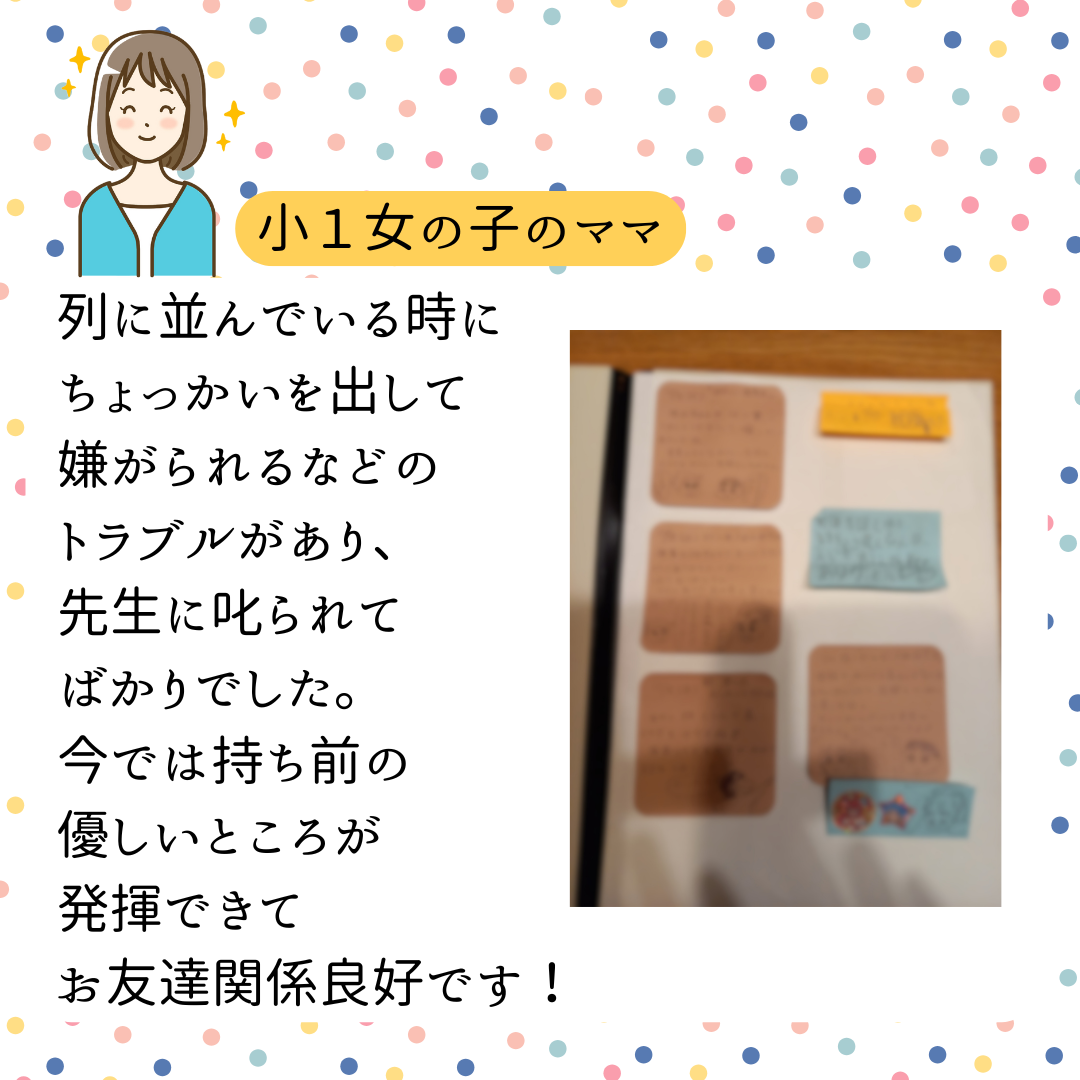 小１女の子のママ
列に並んでいる時に
ちょっかいを出して
嫌がられるなどの
トラブルがあり、
先生に叱られて
ばかりでした。
今では持ち前の
優しいところが
発揮できて
お友達関係良好です！